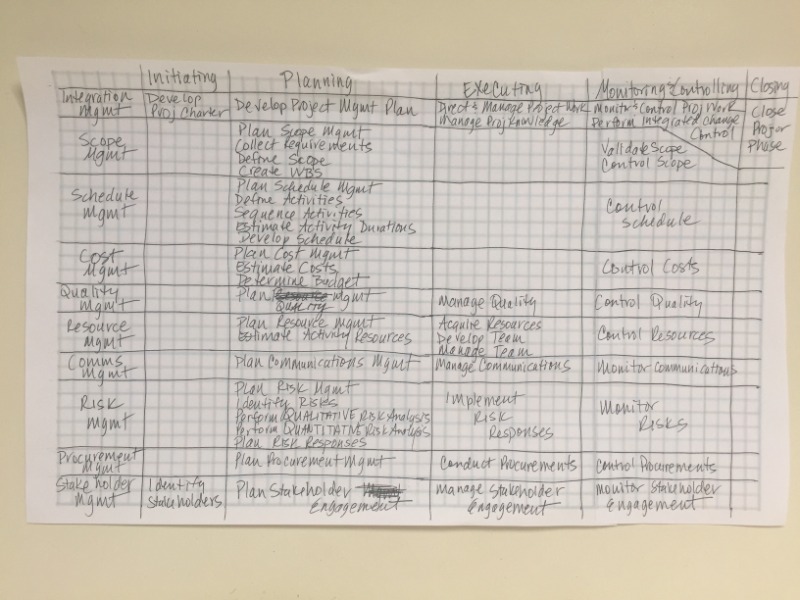 Initiating Planning Executing Monitoring & Controlling Closing
Integration Mgmt
Develop Proj Charter
Develop Project Mgmt Plan
Direct & Manage Project Work
Manage Proj Knowledge
Monitor & Control Proj Work
Perform Integrated Change
Control
Close
Proj or
Phase
Scope
Mgmt
Plan Scope Mgmt
Collect Requirements
Define Scope
Create WBS
Validate Scope
Control Scope
Schedule
Mgmt
Plan Schedule Mgmt
Define Activities
Sequence Activities
Estimate Activity Durations
Develop Schedule
Control
Schedule
Cost
Mgmt
Plan Cost Mgmt
Estimate Costs
Determine Budget
Control Costs
Quality
Mgmt
Plan Mgmt
Quality
Manage Quality
Control Quality
Resource
Mgmt
Plan Resource Mgmt
Estimate Activity Resources
Acquire Resources
Develop Team
Manage Team
Control Resources
Comms
Mgmt
Plan Communications Mgmt
Manage Communications
Monitor Communications
Risk
Mgmt
Plan Risk Mgmt
Identify Risks
Perform QUALITATIVE Risk Analysis
Perform QUANTITATIVE Risk Analysis
Plan Risk Responses
Implement
Risk
Responses
Monitor
Risks
Procurement
Mgmt
Plan Procurement Mgmt
Conduct Procurements
Control Procurements
Stakeholder
Mgmt
Identify
Stakeholders
Plan Stakeholder
Engagement
Manage Stakeholder
Engagement
Monitor Stakeholder
Engagement